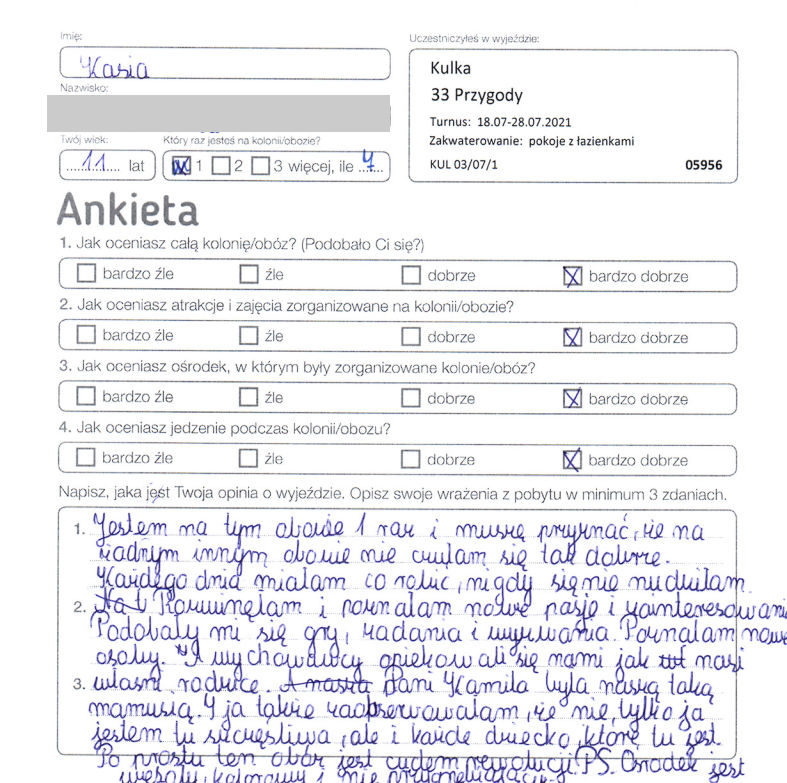 Imię:
Kasia
Nazwisko:
Twój wiek:
11 lat
Który raz jesteś na kolonii/obozie?
1 2 3 więcej, ile 4
Uczestniczyłeś w wyjeździe:
Kulka
33 Przygody
Turnus: 18.07-28.07.2021
Zakwaterowanie: pokoje z łazienkami
KUL 03/07/1 05956
Ankieta
1. Jak oceniasz całą kolonię/obóz? (Podobało Ci się?)
bardzo źle źle dobrze bardzo dobrze
2. Jak oceniasz atrakcje i zajęcia zorganizowane na kolonii/obozie?
bardzo źle źle dobrze bardzo dobrze
3. Jak oceniasz ośrodek, w którym były zorganizowane kolonie/obóz?
bardzo źle źle dobrze bardzo dobrze
4. Jak oceniasz jedzenie podczas kolonii/obozu?
bardzo źle źle dobrze bardzo dobrze
Napisz, jaka jest Twoja opinia o wyjeździe. Opisz swoje wrażenia z pobytu w minimum 3 zdaniach.
1. Jestem na tym obozie 1 raz i muszę przyznać, że na
żadnym innym obozie nie czułam się tak dobrze.
Każdego dnia miałam co robić, nigdy się nie nudziłam.
2. Rozwinęłam i poznałam nowe pasje i zainteresowani
Podobały mi się gry, zadania i wyzwania. Poznałam nowe
osoby. A wychowawcy opiekowali się nami jak nasi
3. własni rodzice. Pani Kamila była naszą taką
mamusią. I ja także zaobserwowałam, że nie tylko ja
jestem tu szczęśliwa, ale i każde dziecko, które tu jest.
Po prostu ten obóz jest cudem rewolucji! PS. Ośrodek jest
wesoły, kolorowy i nie przynudzający.